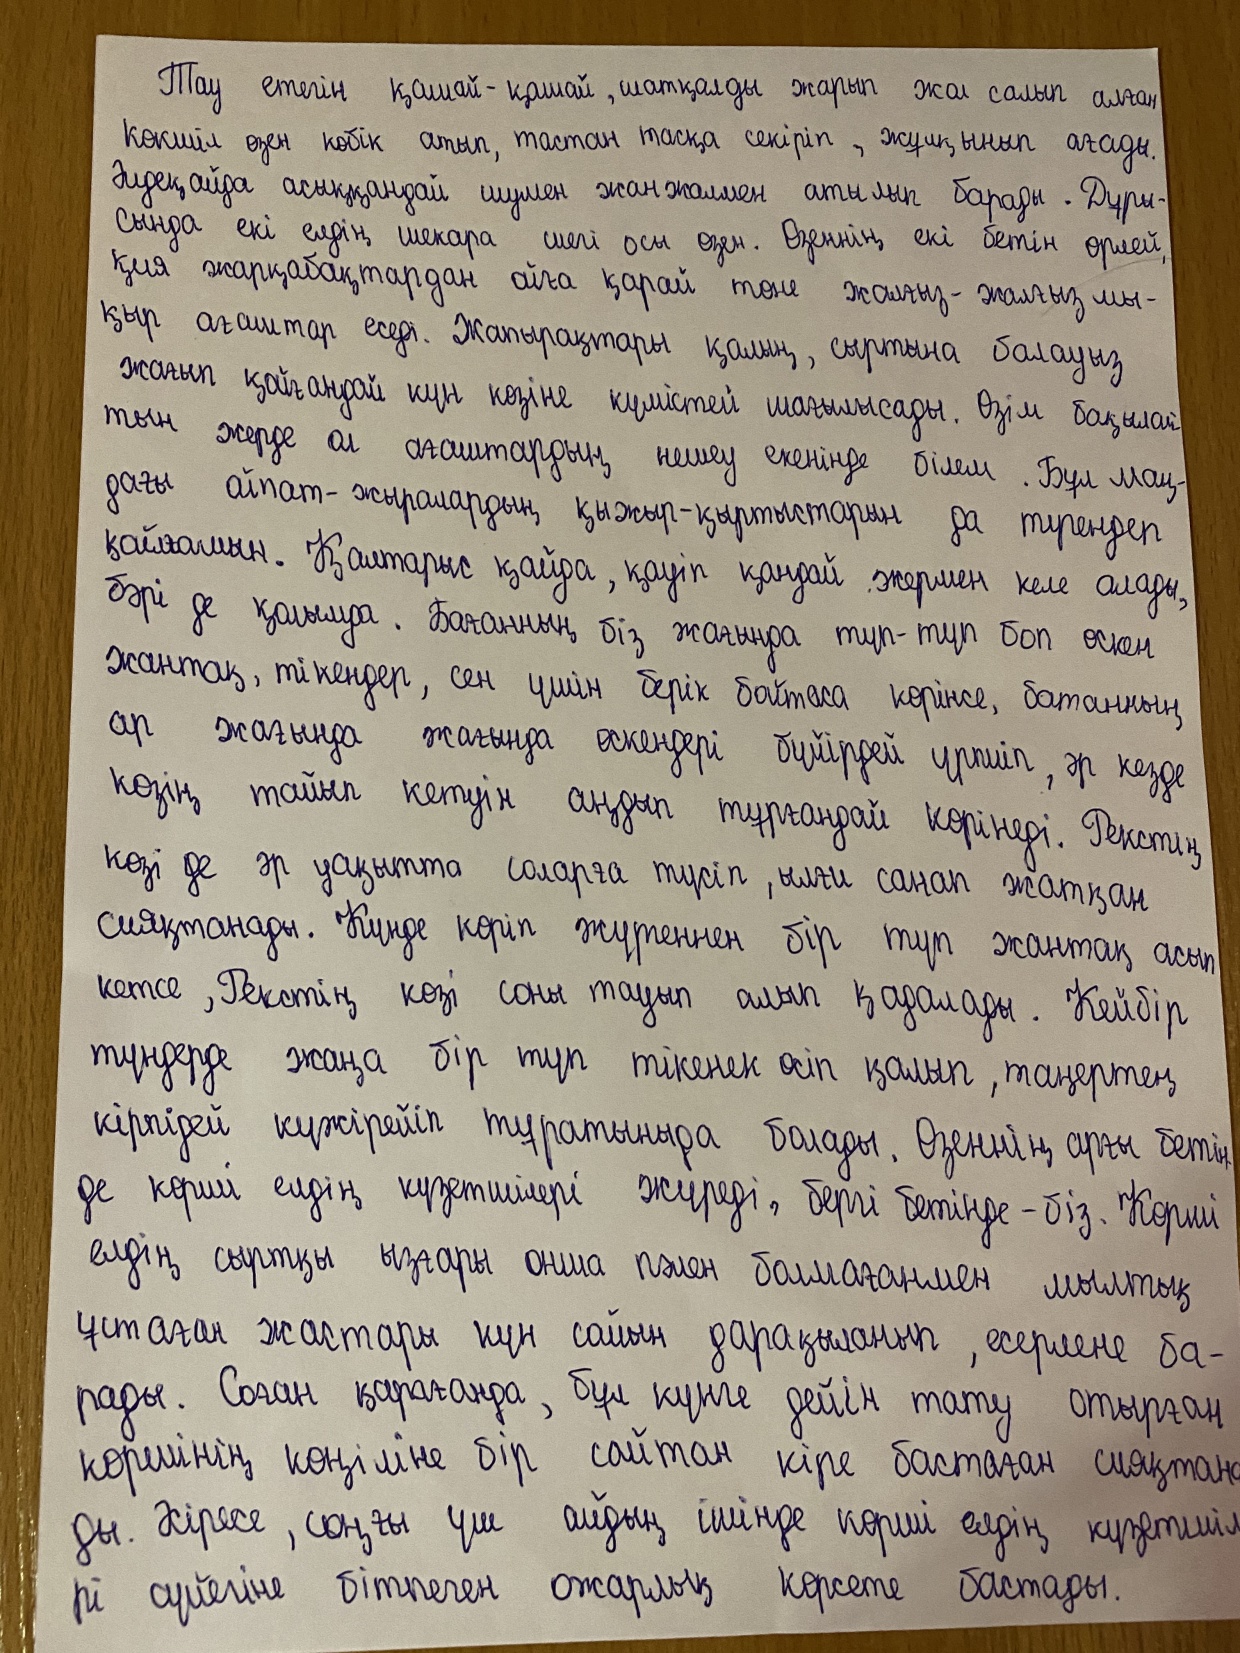 Тау етегін қашай-қашай, шатқалды жарып жол салып алған
Көкшіл өзен көбік атып, тастан тасқа секіріп, жұлқынып ағады.
Әлдеқайда асыққандай шумен жанжалмен атылып барады. Дұры-
сында екі елдің шекара шегі осы өзен. Өзеннің екі бетін өрлей,
қия жарқабақтардан ойға қарай төне жалғыз-жалғыз мы-
қыр ағаштар өседі. Жапырақтары қалың, сыртына балауыз
жағып қойғандай күн көзіне күмістей шағылысады. Өзім бақылай
тын жерде ол ағаштардың нешеу екенінде білем. Бұл маң-
дағы айпат-жыралардың қыжыр-қыртыстарын да түрендеп
қоймамын. Қалтарыс қайда, қауіп қандай жермен келе алады,
бәрі де қолымда. Бағанның біз жағында түп-түп боп өскен
жантақ, тікендер, сен үшін берік байтаса көрінсе, батанның
ар жағында жағында өскендері бүйірдей үрпиіп, әр кезде
көзің тайып кетуін аңдып тұрғандай көрінеді. Рекстің
көзі де әр уақытта соларға түсіп, ылғи санап жатқан
сияқтанады. Күнде көріп жүргеннен бір түп жантақ асып
кетсе, Рекстің көзі соны тауып алып қадалады. Кейбір
түндерде жаңа бір түп тікенек өсіп қалып, таңертең
кірпідей күжірейіп тұратыныда болады. Өзеннің арғы бетін
де көрші елдің күзетшілері жүреді, бергі бетінде-біз. Көрші
елдің сыртқы ызғары онша пәлен болмағанмен мылтық
ұстаған жастары күн сайын дарақыланып, есерлене ба-
рады. Соған қарағанда, бұл күнге дейін тату отырған
көршінің көңіліне бір сайтан кіре бастаған сияқтана
ды. Әсіресе, соңғы үш айдың ішінде көрші елдің күзетшіл
рі сүйегіне бітпеген ожарлық көрсете бастады.